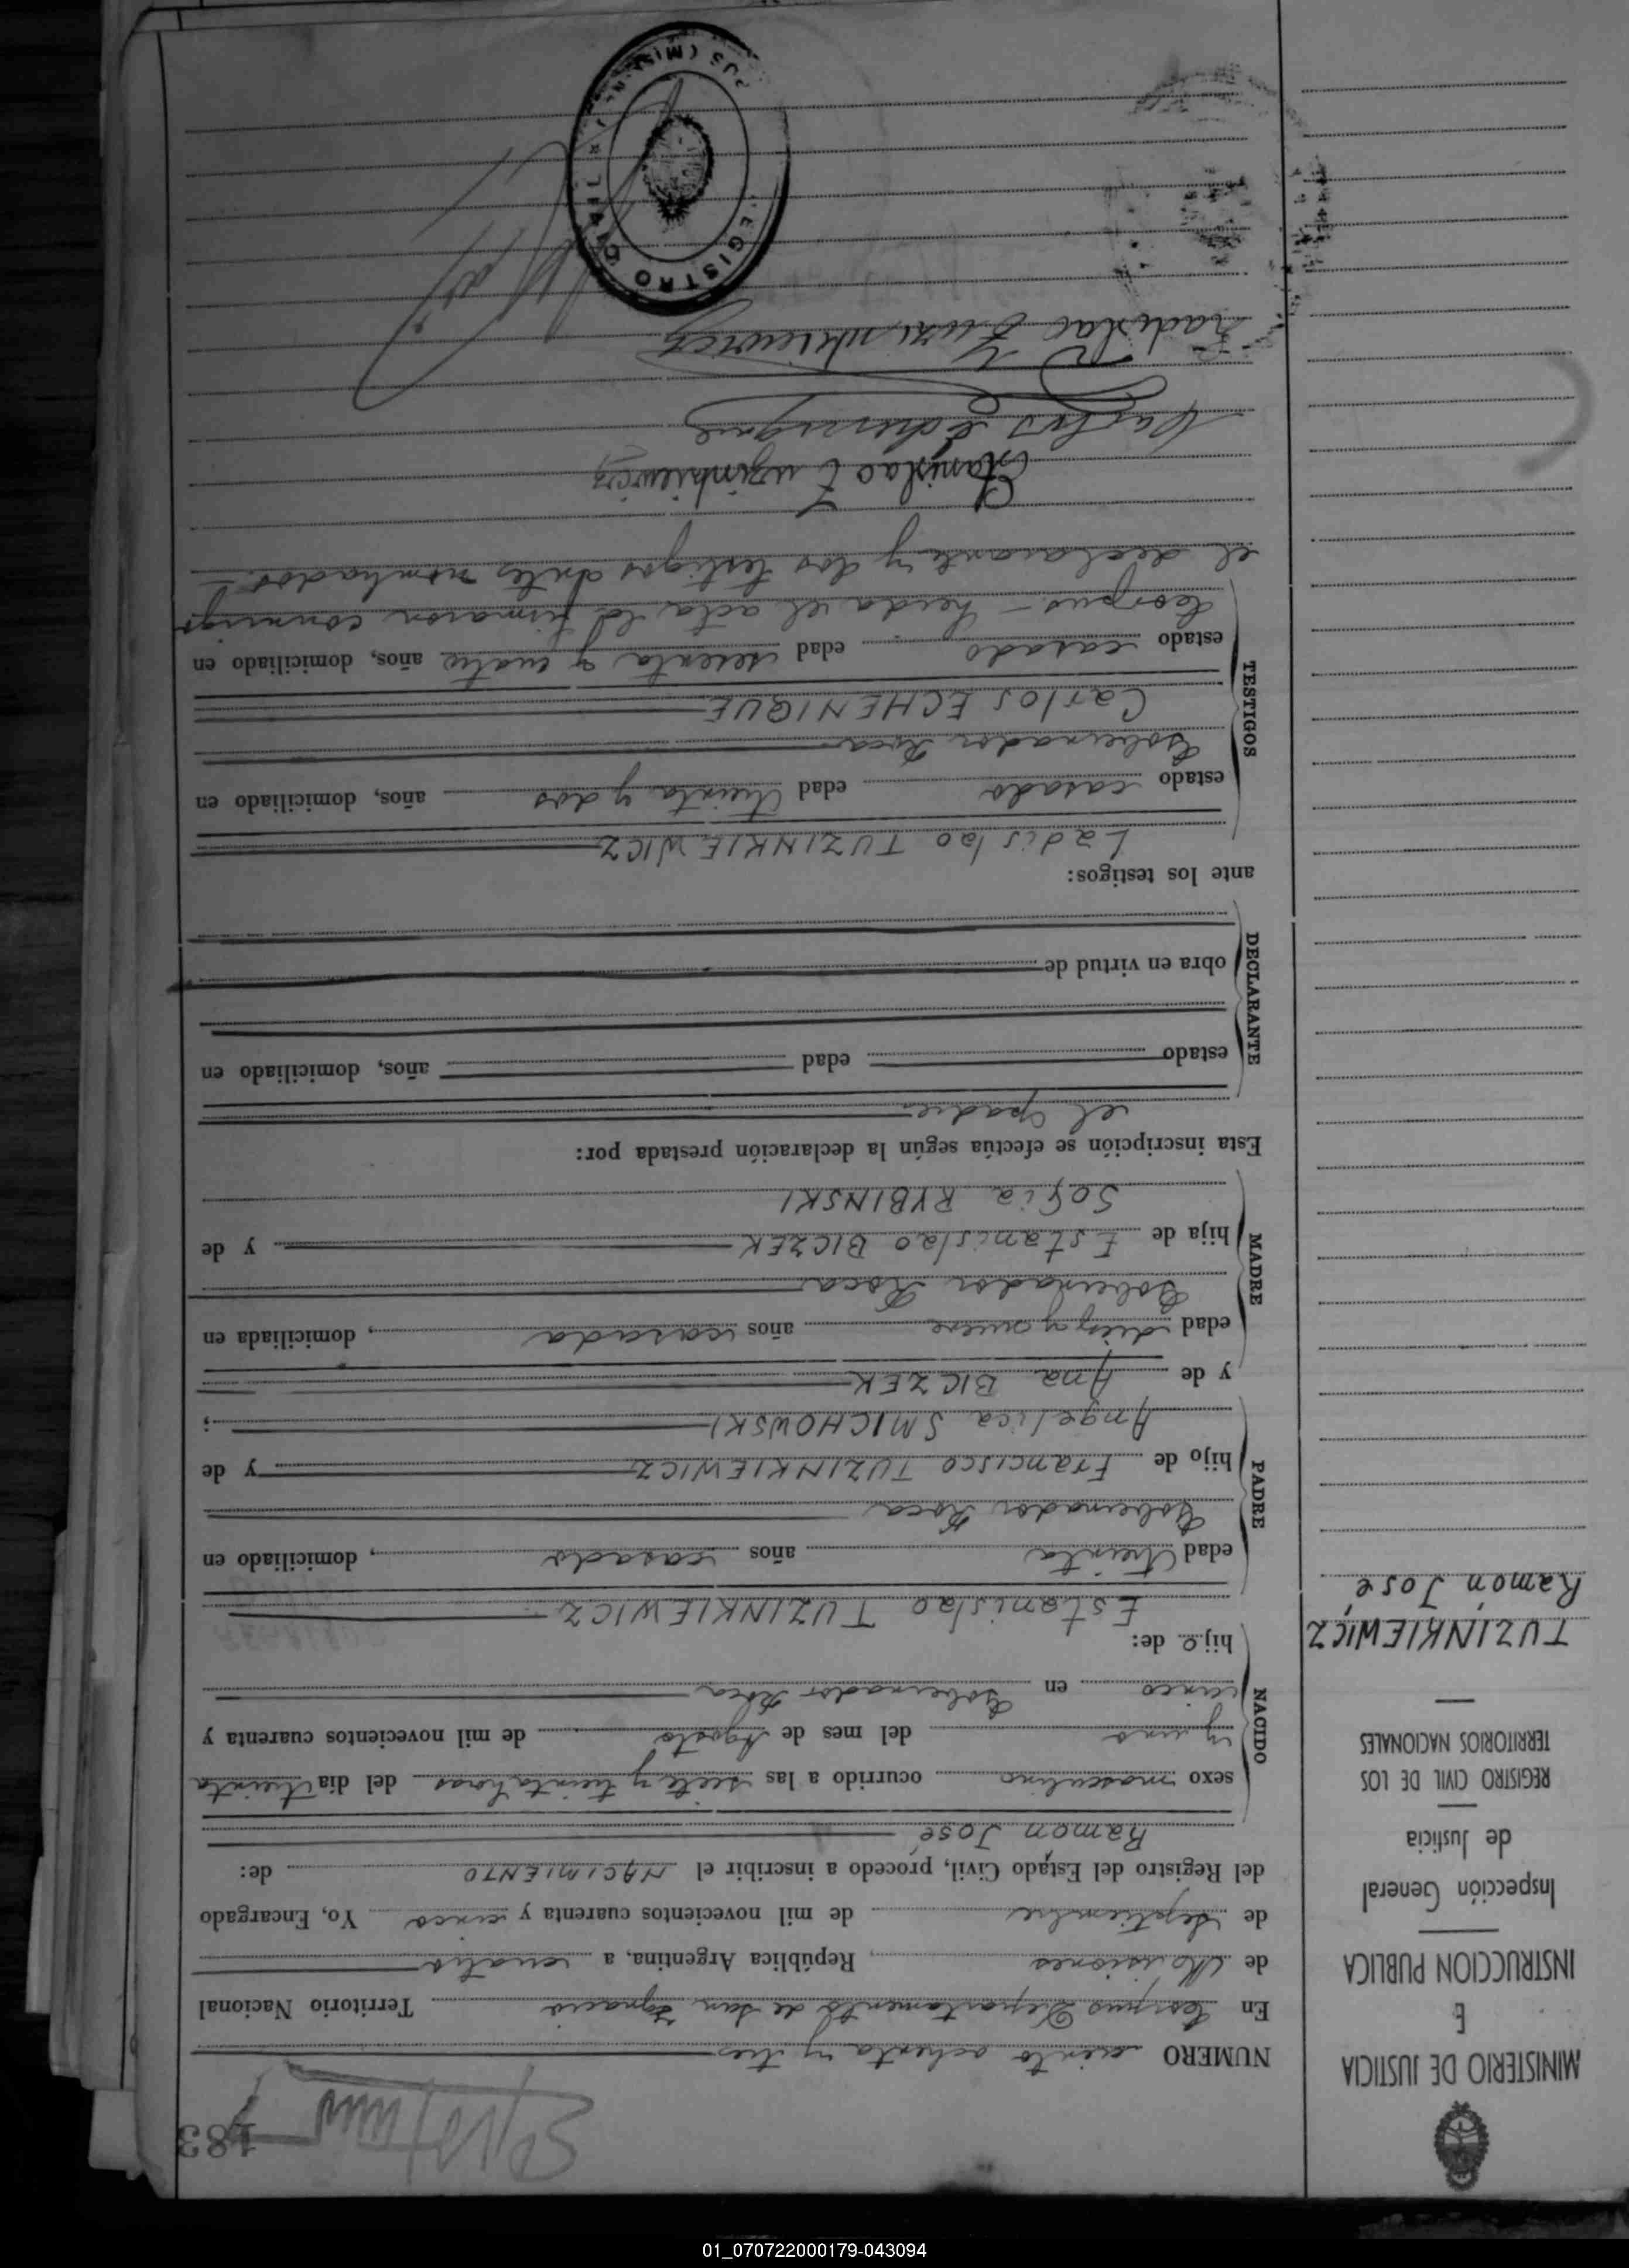 183
MINISTERIO DE JUSTICIA
E
INSTRUCCION PUBLICA
Inspección General
de Justicia
REGISTRO CIVIL DE LOS
TERRITORIOS NACIONALES
TUZINKIEWICZ
Ramón José
NUMERO ciento ochenta y tres
En Corpus Departamento de San Ignacio Territorio Nacional
de Misiones, República Argentina, a cuatro
de Septiembre de mil novecientos cuarenta y cinco Yo, Encargado
del Registro del Estado Civil, procedo a inscribir el NACIMIENTO de:
Ramón José
NACIDO
sexo masculino ocurrido a las siete y treinta horas del dia treinta
y uno del mes de Agosto de mil novecientos cuarenta y
cinco en Gobernador Roca
hijo de:
PADRE
Estanislao TUZINKIEWICZ
edad treinta años casado, domiciliado en
Gobernador Roca
hijo de Francisco TUZINKIEWICZ y de
Angelica SMICHOWSKI;
MADRE
y de Ana BICZEK
edad diez y nueve años casada, domiciliada en
Gobernador Roca
hija de Estanislao BICZEK y de
Sofia RYBINSKI
Esta inscripción se efectúa según la declaración prestada por:
DECLARANTE
el padre
estado edad años, domiciliado en
obra en virtud de
ante los testigos:
TESTIGOS
Ladislao TUZINKIEWICZ
estado casado edad treinta y dos años, domiciliado en
Gobernador Roca
Carlos ECHENIQUE
estado casado edad sesenta y cuatro años, domiciliado en
Corpus - Leida el acta la firmaron conmigo
el declarante y los testigos antes nombrados.-
Stanislao Tuzinkiewicz
Carlos Echenique
Ladislao Tuzinkiewicz
REGISTRO CIVIL
01_070722000179-043094